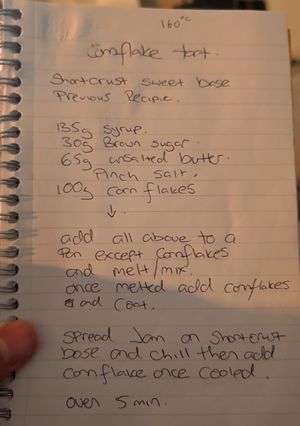 160°C
Cornflake tart.
Shortcrust sweet base
Previous Recipie.
135g syrup.
30g Brown sugar.
65g unsalted butter.
Pinch salt.
100g corn flakes
↓.
add all above to a
Pan except Cornflakes
and melt/mix.
once melted add cornflakes
and Coat.
Spread Jam on Shortcrust
base and chill then add
Cornflake once Cooled.
oven 5 min.